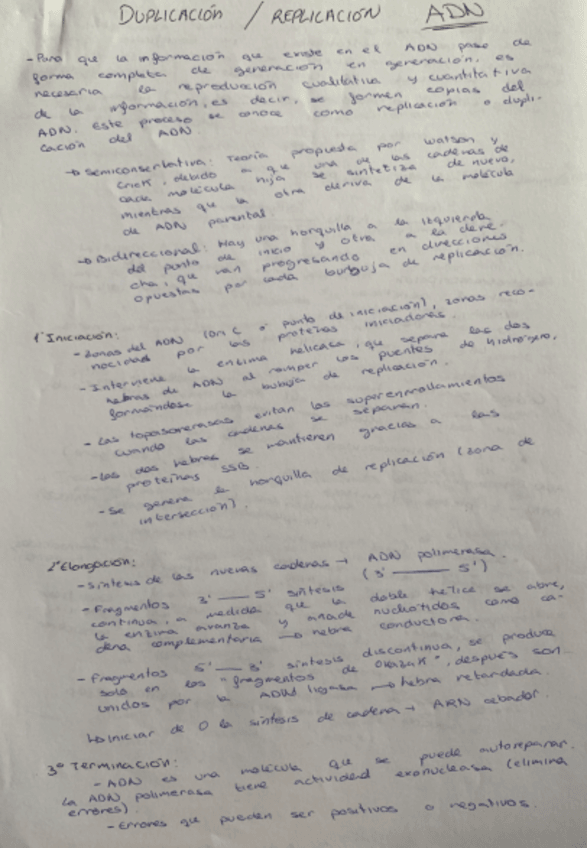 DUPLICACIÓN / REPLICACIÓN ADN
- Para que la información que existe en el ADN pase de
forma completa de generación en generación, es
necesaria la reproducción cualitativa y cuantitativa
de la información, es decir, se formen copias del
ADN. Este proceso se conoce como replicación o dupli-
cación del ADN.
→ Semiconservativa: Teoría propuesta por Watson y
Crick, debido a que una de las cadenas de
cada molécula hija se sintetiza de nuevo,
mientras que la otra deriva de la molécula
de ADN parental.
→ Bidireccional: Hay una horquilla a la izquierda
del punto de inicio y otra a la dere-
cha, que van progresando en direcciones
opuestas por cada burbuja de replicación.
1º Iniciación:
- Zonas del ADN (on C o punto de iniciación), zonas reco-
nocidas por las proteínas iniciadoras.
- Interviene la enzima helicasa, que separa las dos
hebras de ADN al romper los puentes de hidrógeno,
formándose la burbuja de replicación.
- Las topoisomerasas evitan los superenrollamientos
cuando las cadenas se separan.
- Las dos hebras se mantienen gracias a las
proteínas SSB.
- Se genera la horquilla de replicación (zona de
intersección).
2º Elongación:
- Síntesis de las nuevas cadenas → ADN polimerasa.
(3' — 5')
- Fragmentos 3' — 5' síntesis
continua, a medida que la doble hélice se abre,
la enzima avanza y añade nucleótidos como ca-
dena complementaria → hebra conductora.
- Fragmentos 5' — 3' síntesis discontinua, se produce
solo en los "fragmentos de Okazaki", después son
unidos por la ADN ligasa → hebra retardada.
↳ Iniciar de 0 la síntesis de cadena → ARN cebador.
3º Terminación:
- ADN es una molécula que se puede autoreparar.
La ADN polimerasa tiene actividad exonucleasa (elimina
errores).
- Errores que pueden ser positivos o negativos.